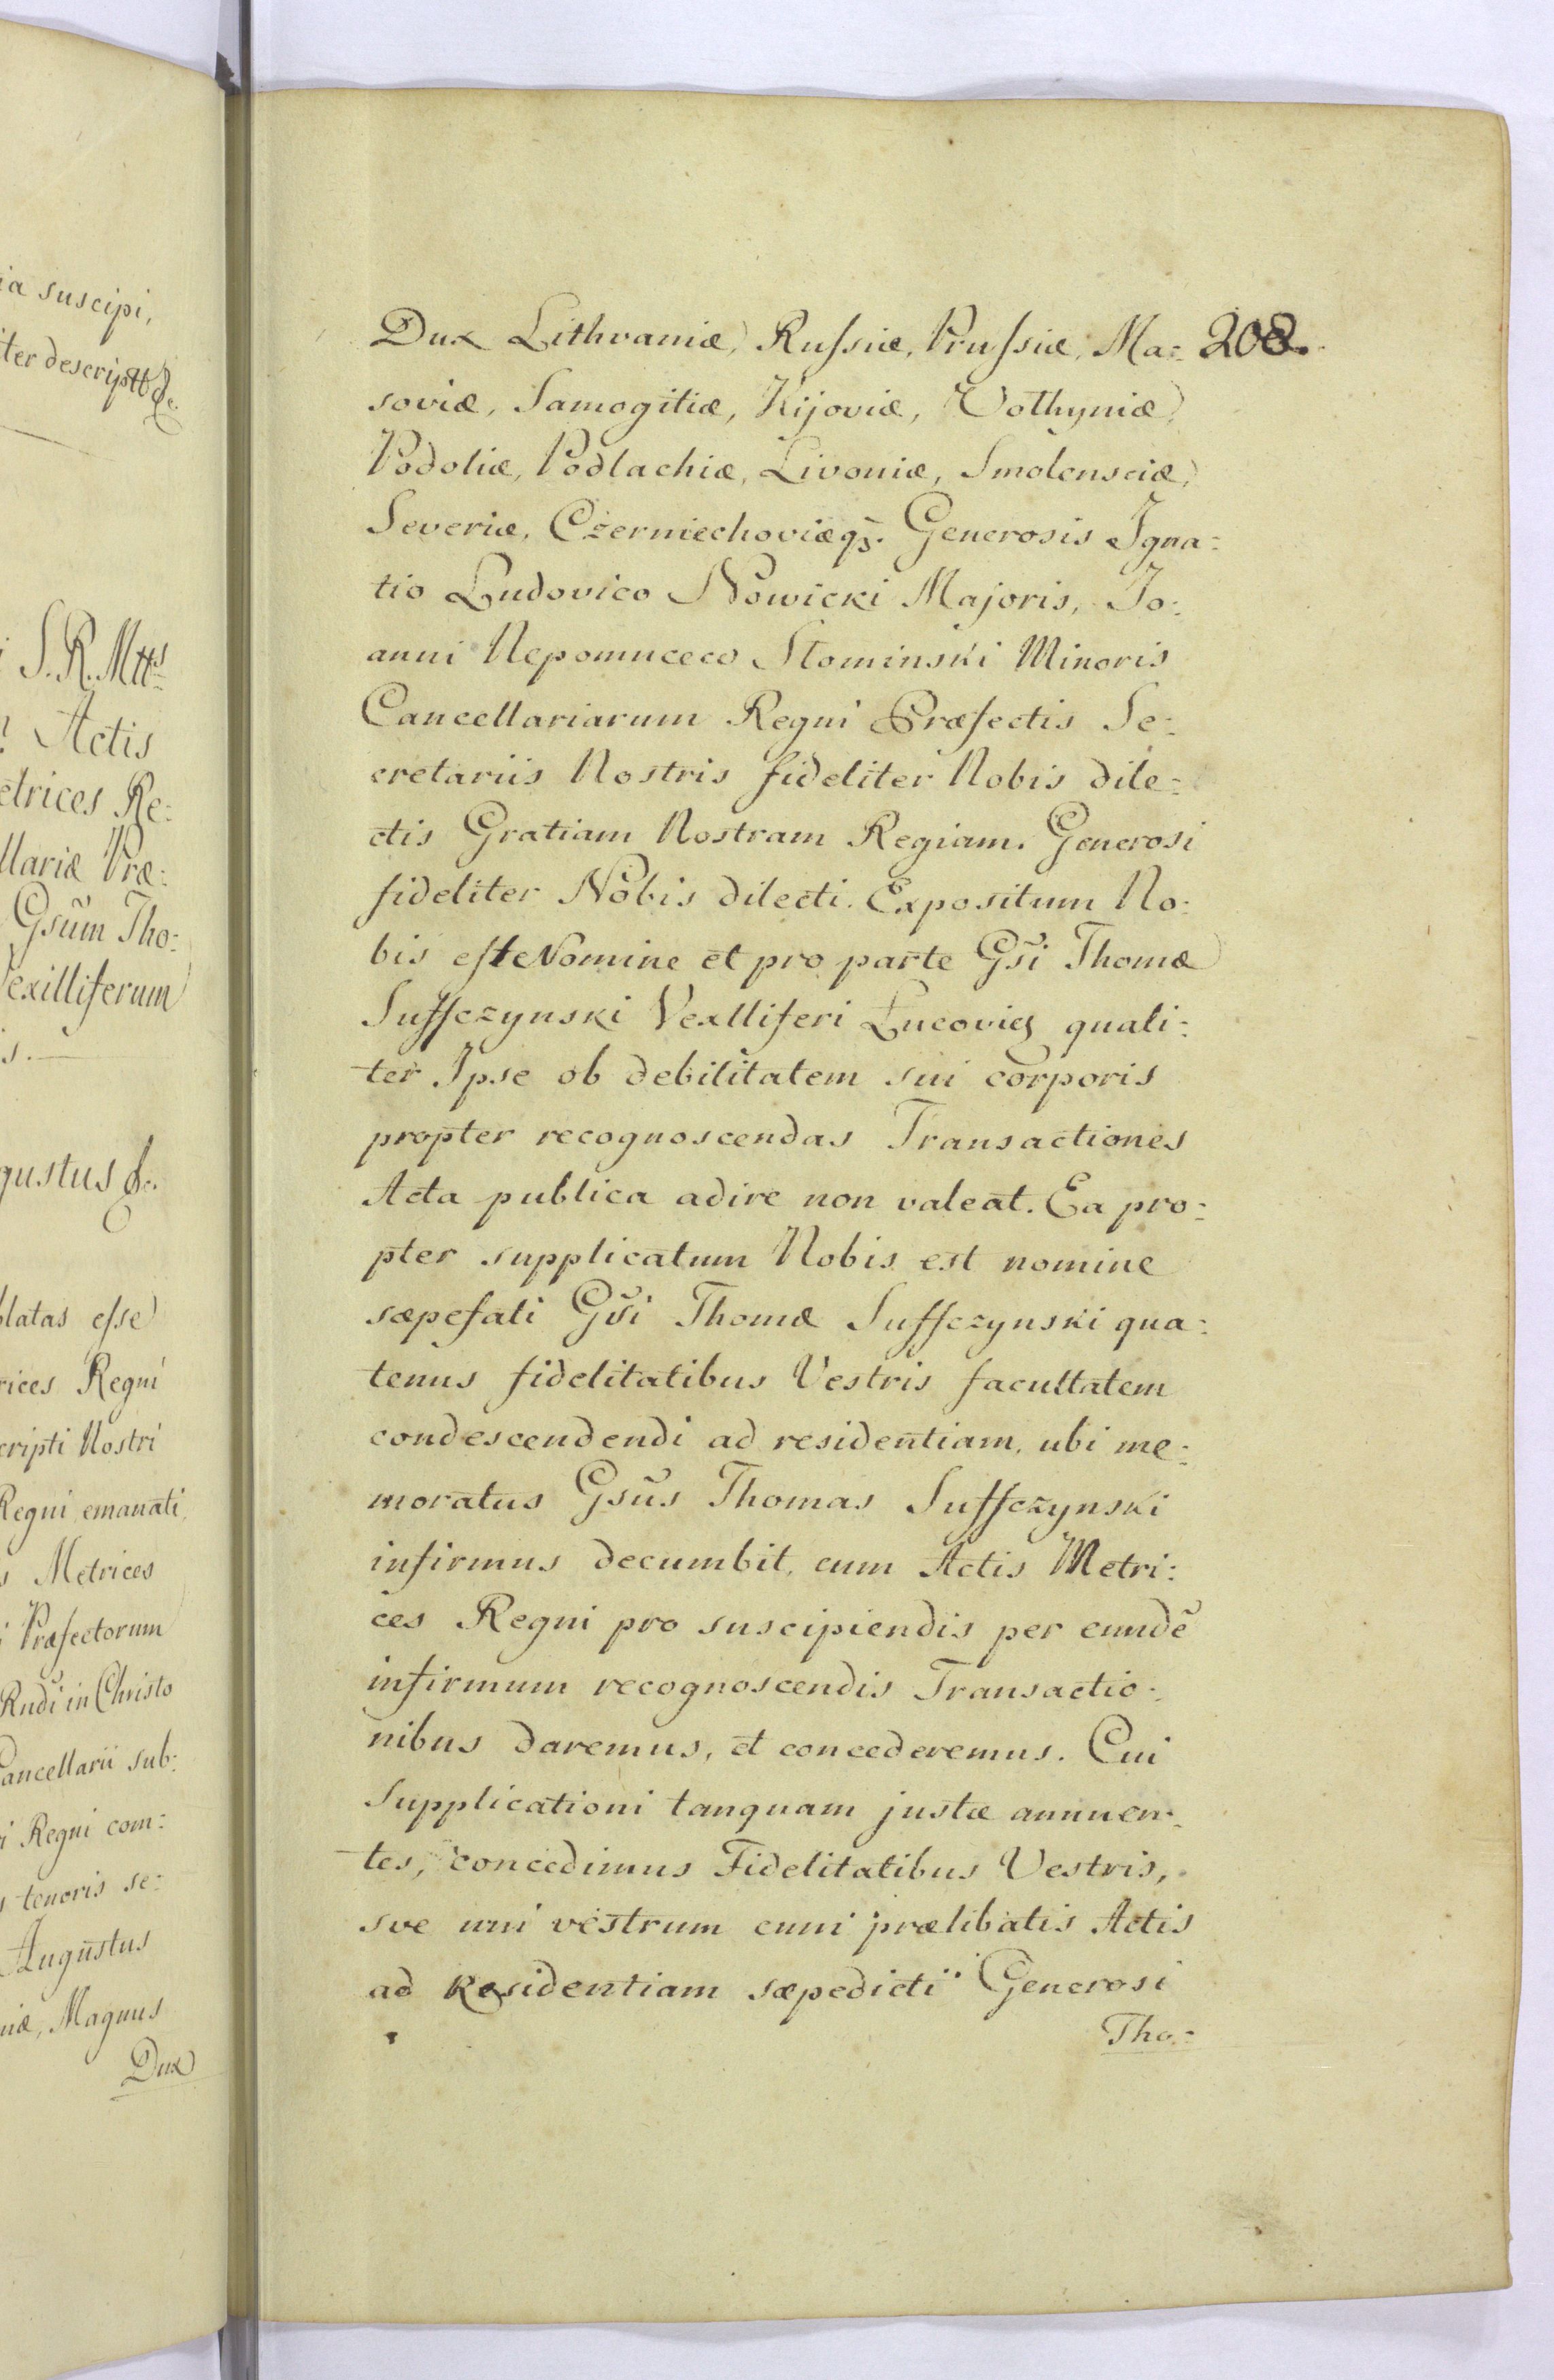 ia suscipi,
iter descriptb &c.
i S. R. Mttis
Actis
etrices Re:
llariæ Præ:
Gsum Tho:
Vexilliferum
s.
gustus &c.
blatas esse
rices Regni
cripti Nostri
Regni emanati,
s Metrices
i Præfectorum
Rndi in Christo
Cancellarii sub:
ri Regni com:
s tenoris se:
Augustus
niæ, Magnus
Dux
208.
Dux Lithvaniæ, Russiæ, Prussiæ, Ma:
soviæ, Samogitiæ, Kijoviæ, Volhyniæ,
Podoliæ, Podlachiæ, Livoniæ, Smolensciæ,
Severiæ, Czerniechoviæq3. Generosis Igna:
tio Ludovico Nowicki Majoris, Jo:
anni Nepomuceco Słominski Minoris
Cancellariarum Regni Præfectis Se:
cretariis Nostris fideliter Nobis dile:
ctis Gratiam Nostram Regiam. Generosi
fideliter Nobis dilecti. Expositum No:
bis est Nomine et pro parte Gsi Thomæ
Suffczynski Vexlliferi Łucovies quali:
ter Ipse ob debilitatem sui corporis
propter recognoscendas Transactiones
Acta publica adire non valeat. Ea pro:
pter supplicatum Nobis est nomine
sæpefati Gsi Thomæ Suffczynski qua:
tenus fidelitatibus Vestris facultatem
condescendendi ad residentiam, ubi me:
moratus Gsus Thomas Suffczynski
infirmus decumbit, cum Actis Metri:
ces Regni pro suscipiendis per eundẽ
infirmum recognoscendis Transactio:
nibus daremus, et concederemus. Cui
Supplicationi tanquam justæ annuen:
tes, concedimus Fidelitatibus Vestris,
sve uni vestrum cum prælibatis Actis
ad Residentiam sæpedicti Generosi
Tho: